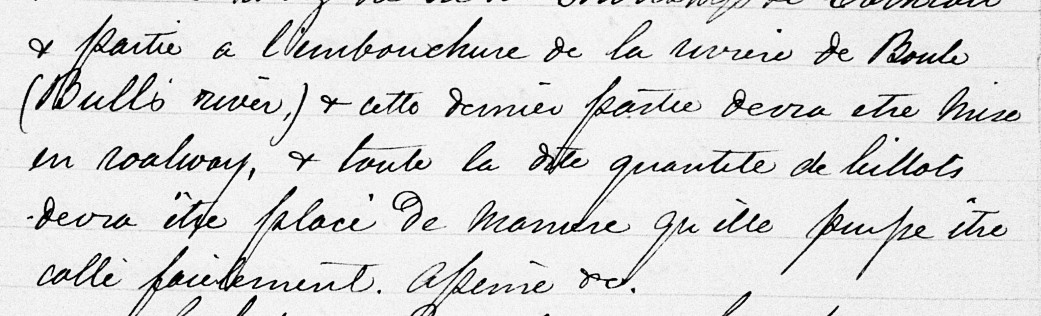 & partie a l'embouchure de la riviere de Boule
(Bulls river,) & cette dernier partie devra etre mise
en roalway, & toute la dite quantite de billots
devra être placé de maniere qu'elle puisse être
collé facilement. Assemé &c.